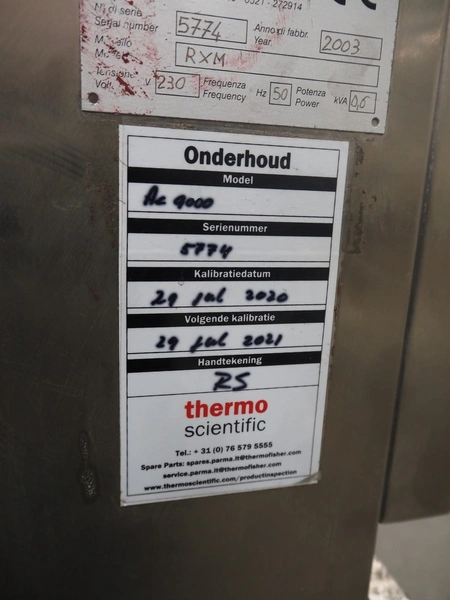 0521 - 272914
N. di serie
Serial number 5774 Anno di fabbr.
Year 2003
Modello RXM
Tensione V 230 Frequenza
Frequency Hz 50 Potenza
Power kVA 0,5
Onderhoud
Model
AC 9000
Serienummer
5774
Kalibratiedatum
29 jul 2020
Volgende kalibratie
29 jul 2021
Handtekening
RS
thermo
scientific
Tel.: + 31 (0) 76 579 5555
Spare Parts: spares.parma.it@thermofisher.com
service.parma.it@thermofisher.com
www.thermoscientific.com/productinspection